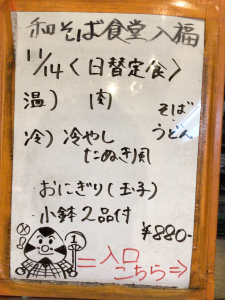 和そば食堂入福
11/14〈日替定食〉
温）肉
そば
うどん
冷）冷やし
たぬき風
・おにぎり（玉子）
・小鉢2品付
¥880-
=入口
こちら⇒